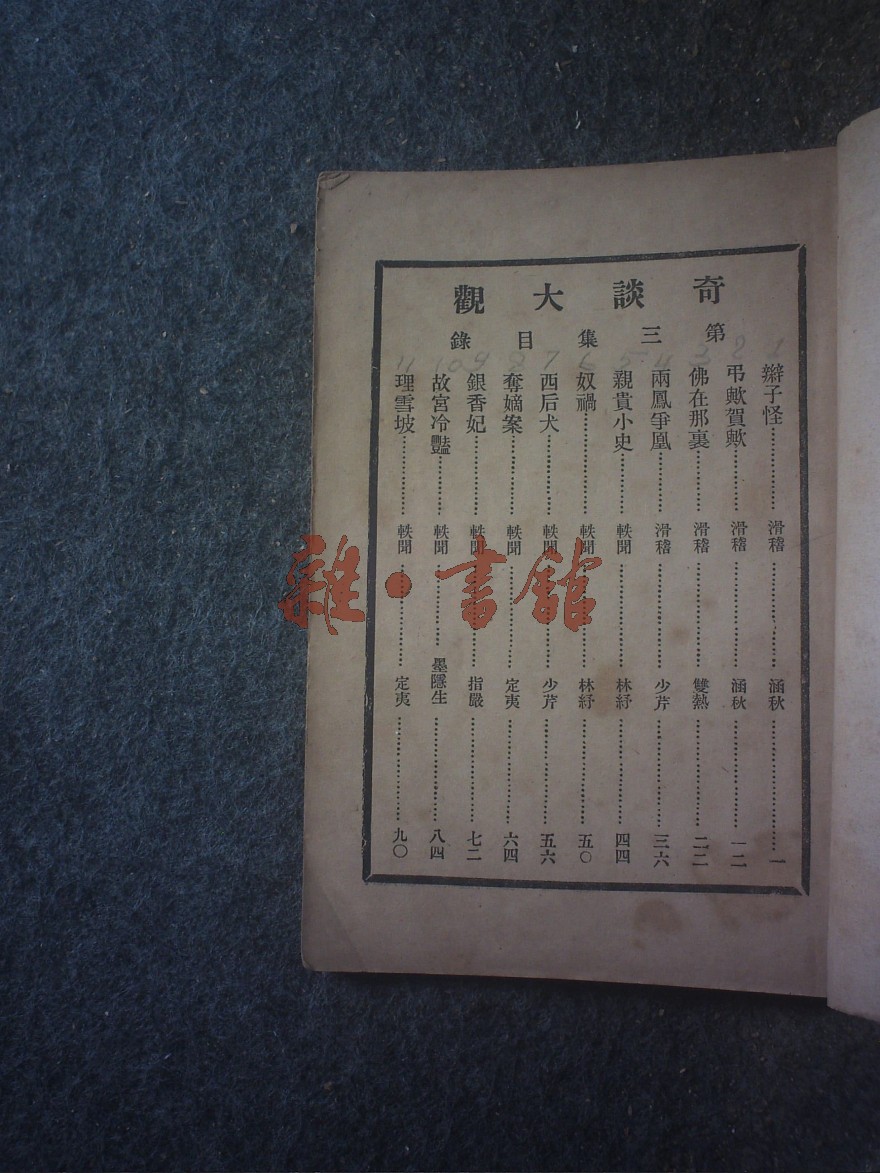 奇談大觀
第三集目錄
1 辮子怪 滑稽 涵秋 一
2 弔歟賀歟 滑稽 涵秋 一二
3 佛在那裏 滑稽 雙熱 二二
4 兩鳳爭凰 滑稽 少芹 三六
5 親貴小史 軼聞 林紓 四四
6 奴禍 軼聞 林紓 五〇
7 西后犬 軼聞 少芹 五六
8 奪嫡案 軼聞 定夷 六四
9 銀香妃 軼聞 指嚴 七二
10 故宮冷豔 軼聞 墨隱生 八四
11 理雪坡 軼聞 定夷 九〇
雜·書舘